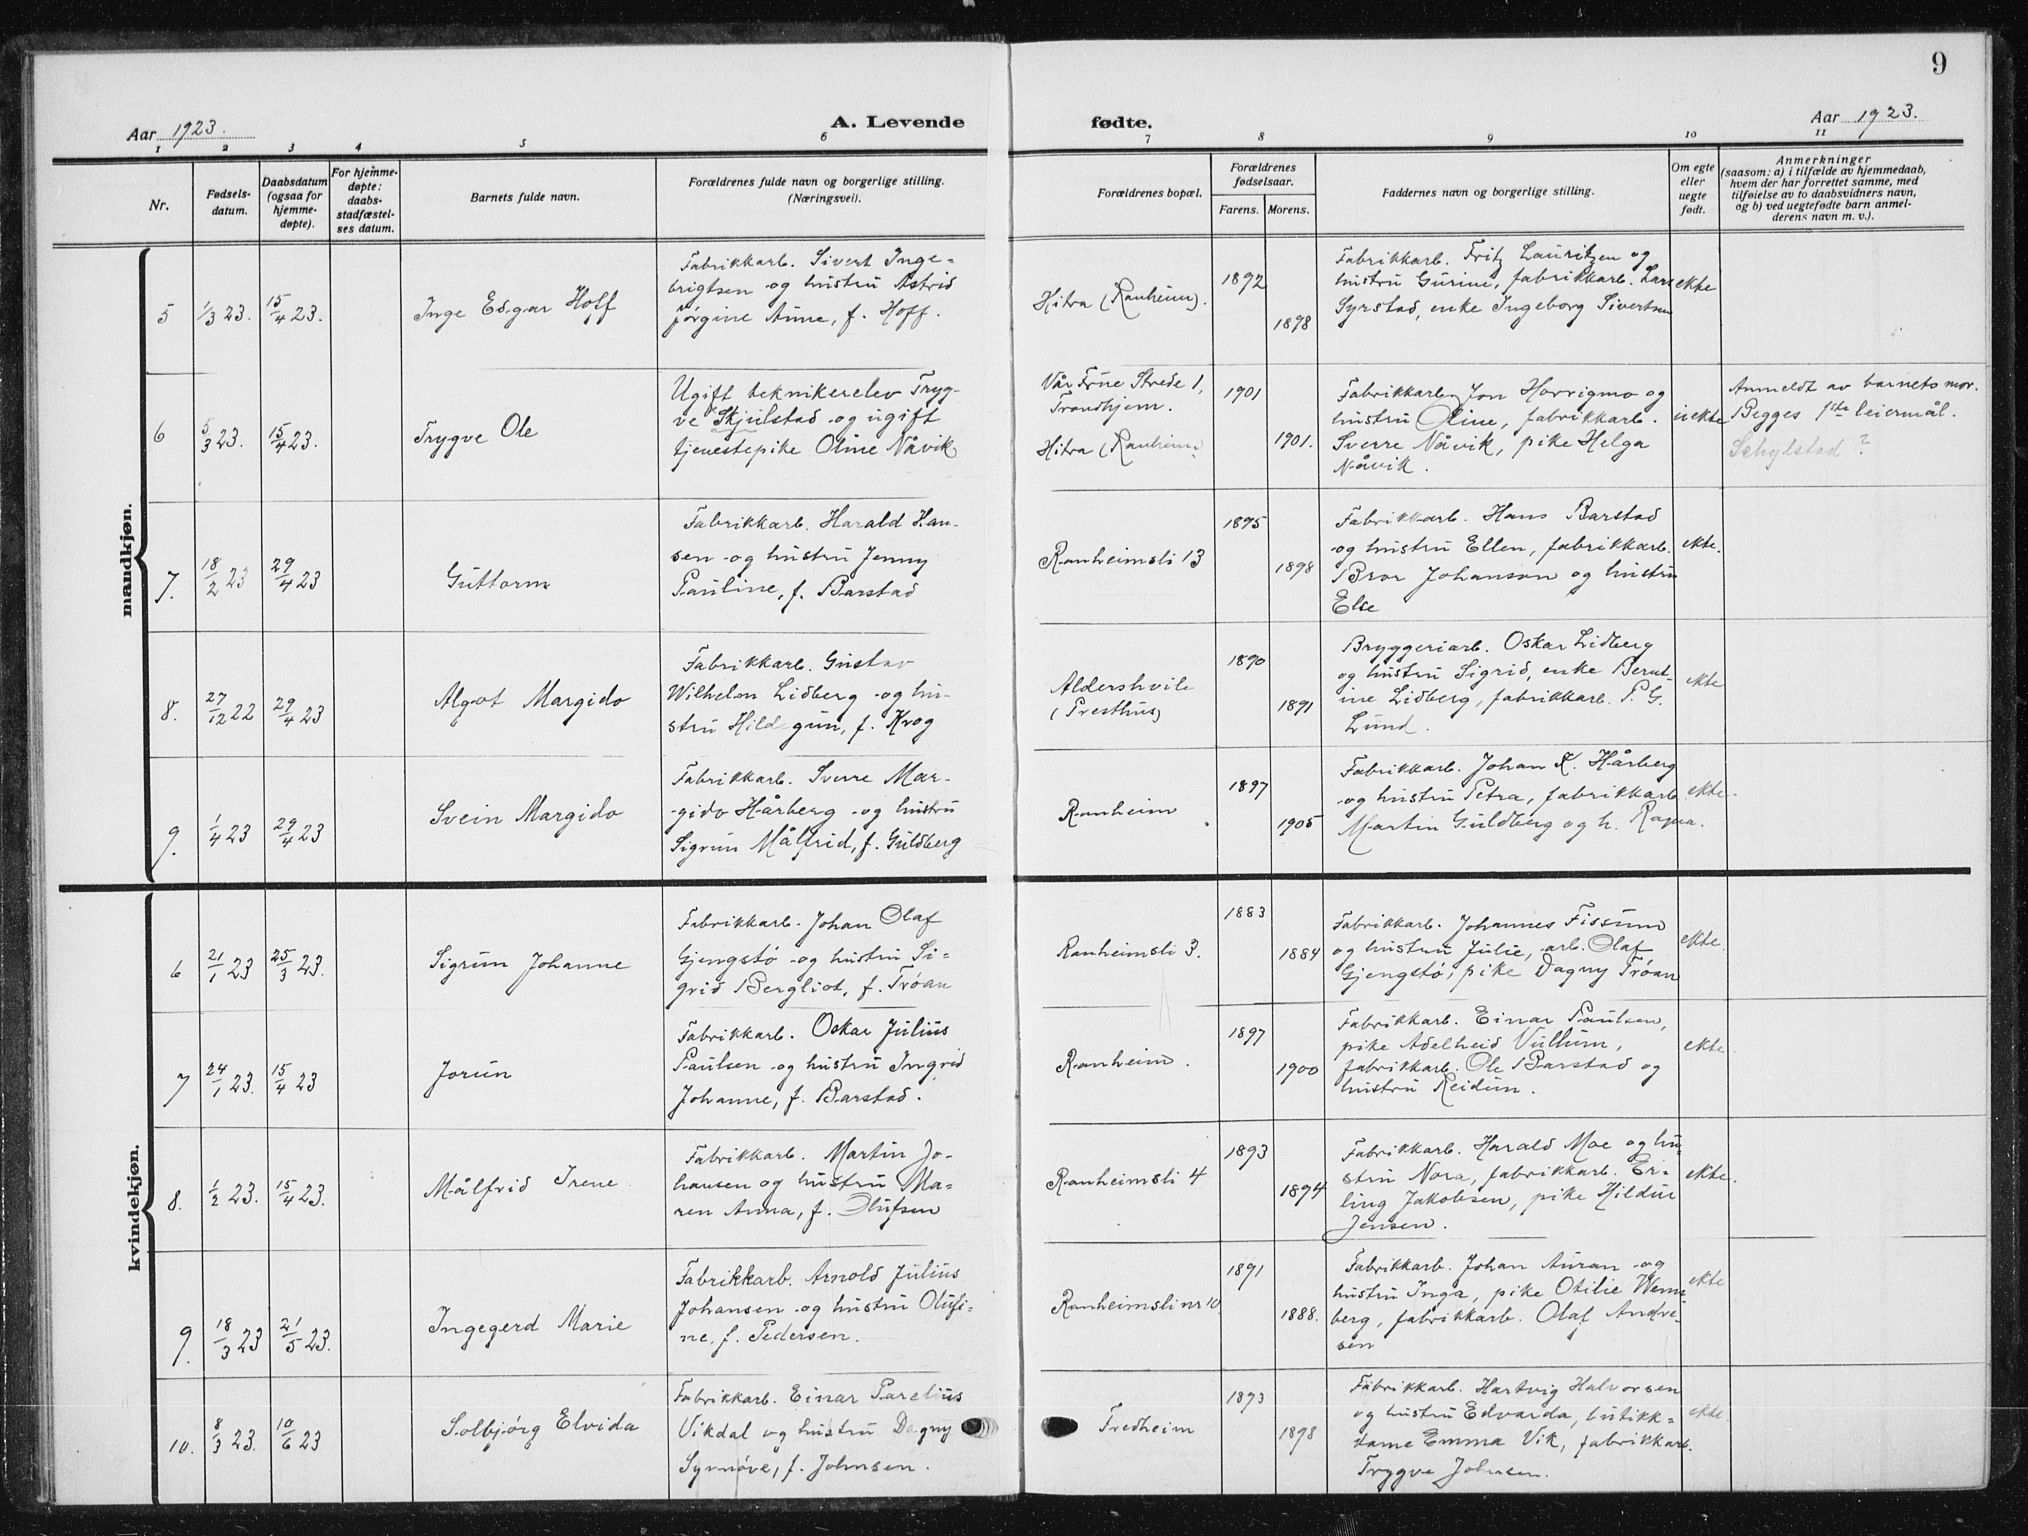 9
Aar 1923.
A. Levende fødte.
Aar 1923.
1 2 3 4 5 6 7 8 9 10 11
Nr.
Fødsels-
datum.
Daabsdatum
(ogsaa for
hjemme-
døpte).
For hjemme-
døpte:
daabs-
stadfæstel-
ses datum.
Barnets fulde navn.
Forældrenes fulde navn og borgerlige stilling.
(Næringsvei).
Forældrenes bopæl.
Forældrenes
fødselsaar.
Farens. Morens.
Faddernes navn og borgerlige stilling.
Om egte
eller
uegte
født.
Anmerkninger
(saasom: a) i tilfælde av hjemmedaab,
hvem der har forrettet samme, med
tilføielse av to daabsvidners navn,
og b) ved uegtefødte barn anmel-
derens navn m. v.).
mandkjøn.
5
1/3 23.
15/4 23.
Inge Edgar Hoff
Fabrikkarb. Sivert Inge-
brigtsen og hustru Astrid
Jørgine Anne, f. Hoff.
Hitra (Ranheim).
1892
1898
Fabrikkarb. Fritz Lauritzen og
hustru Gurine, fabrikkarb. Lars
Syrstad, enke Ingeborg Sivertsen
ekte
6
5/3 23.
15/4 23.
Trygve Ole
Ugift teknikerelev Tryg-
ve Skjulstad og ugift
tjenestepike Oline Nåvik
Vår Frue Strede 1,
Trondhjem.
Hitra (Ranheim)
1901
1901.
Fabrikkarb. Jon Horrigmo og
hustru Oline, fabrikkarb.
Sverre Nåvik, pike Helga
Nåvik.
uekte
Anmeldt av barnets mor.
Begges 1ste leiermål.
Schylstad ?
7.
18/2 23
29/4 23
Guttorm
Fabrikkarb. Harald Han-
sen og hustru Jenny
Pauline, f. Barstad
Ranheimsli 13
1895
1898
Fabrikkarb. Hans Barstad
og hustru Ellen, fabrikkarb.
Bror Johanson og hustru
Else
ekte.
8.
27/12 22
29/4 23
Algot Margido
Fabrikkarb. Gustav
Wilhelm Lidberg og hu-
stru Hildgun, f. Krog
Aldershvile
(Presthus)
1890
1891
Bryggeriarb. Oskar Lidberg
og hustru Sigrid, enke Bernt-
ine Lidberg, fabrikkarb. P. G.
Lund.
ekte
9.
1/4 23
29/4 23
Svein Margido
Fabrikkarb. Sverre Mar-
gido Hårberg og hustru
Sigrun Målfrid, f. Guldberg
Ranheim
1897
1905
Fabrikkarb. Johan K. Hårberg
og hustru Petra, fabrikkarb.
Martin Guldberg og h. Ragna.
ekte.
kvindekjøn.
6
21/1 23
25/3 23.
Sigrun Johanne
Fabrikkarb. Johan Olaf
Gjengstø og hustru Si-
grid Bergliot, f. Trøan
Ranheimsli 3.
1883
1884
Fabrikkarb. Johannes Fissum
og hustru Julie, arb. Olaf
Gjengstø, pike Dagny Trøan
ekte.
7
24/1 23.
15/4 23
Jorun
Fabrikkarb. Oskar Julius
Paulsen og hustru Ingrid
Johanne, f. Barstad.
Ranheim.
1897
1900
Fabrikkarb. Einar Paulsen,
pike Adelheid Vullum,
fabrikkarb. Ole Barstad og
hustru Reidun.
ekte
8.
1/2 23.
15/4 23.
Målfrid Irene
Fabrikkarb. Martin Jo-
hansen og hustru Ma-
ren Anna, f. Olufsen
Ranheimsli 4
1893
1894
Fabrikkarb. Harald Moe og hu-
stru Nora, fabrikkarb. Er-
ling Jakobsen, pike Hildur
Jensen.
ekte.
9.
18/3 23
21/5 23.
Ingegerd Marie
Fabrikkarb. Arnold Julius
Johansen og hustru Olufi-
ne, f. Pedersen.
Ranheimsli nr 10
1891
1888.
Fabrikkarb. Johan Auran og
hustru Inga, pike Otilie Wenn-
berg, fabrikkarb. Olaf Andre-
sen
ekte
10.
8/3 23.
10/6 23
Solbjørg Elvida
Fabrikkarb. Einar Parelius
Vikdal og hustru Dagny
Synnøve, f. Johnsen.
Fredheim
1893
1898
Fabrikkarb. Hartvig Halvorsen
og hustru Edvarda, butikk-
dame Emma Vik, fabrikkarb.
Trygve Johnsen.
ekte.